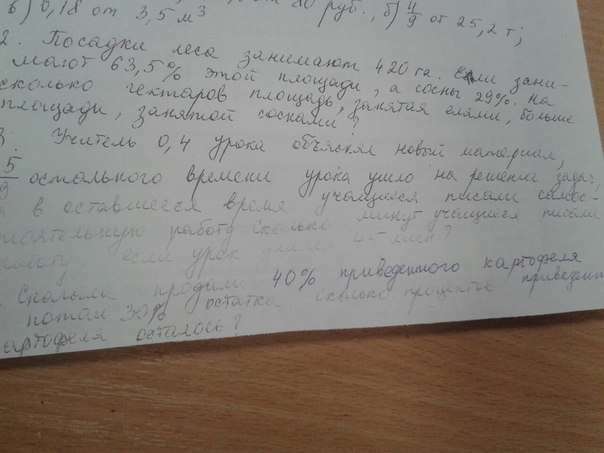 в) 0,18 от 3,5 м³ от 80 руб., б) 4/9 от 25,2 т;
2. Посадки леса занимают 420 га. ели зани-
мают 63,5% этой площади, а сосны 29%. На
сколько гектаров площадь, занятая елями, больше
площади, занятой соснами?
3. Учитель 0,4 урока объяснял новый материал,
5/9 остального времени урока ушло на решение задач,
а в оставшееся время учащиеся писали самос-
тоятельную работу. Сколько минут учащиеся писали
работу, если урок 45 мин?
Сначала продали 40% приведенного картофеля
потом 30% остатка. сколько процентов приведен
картофеля осталось?